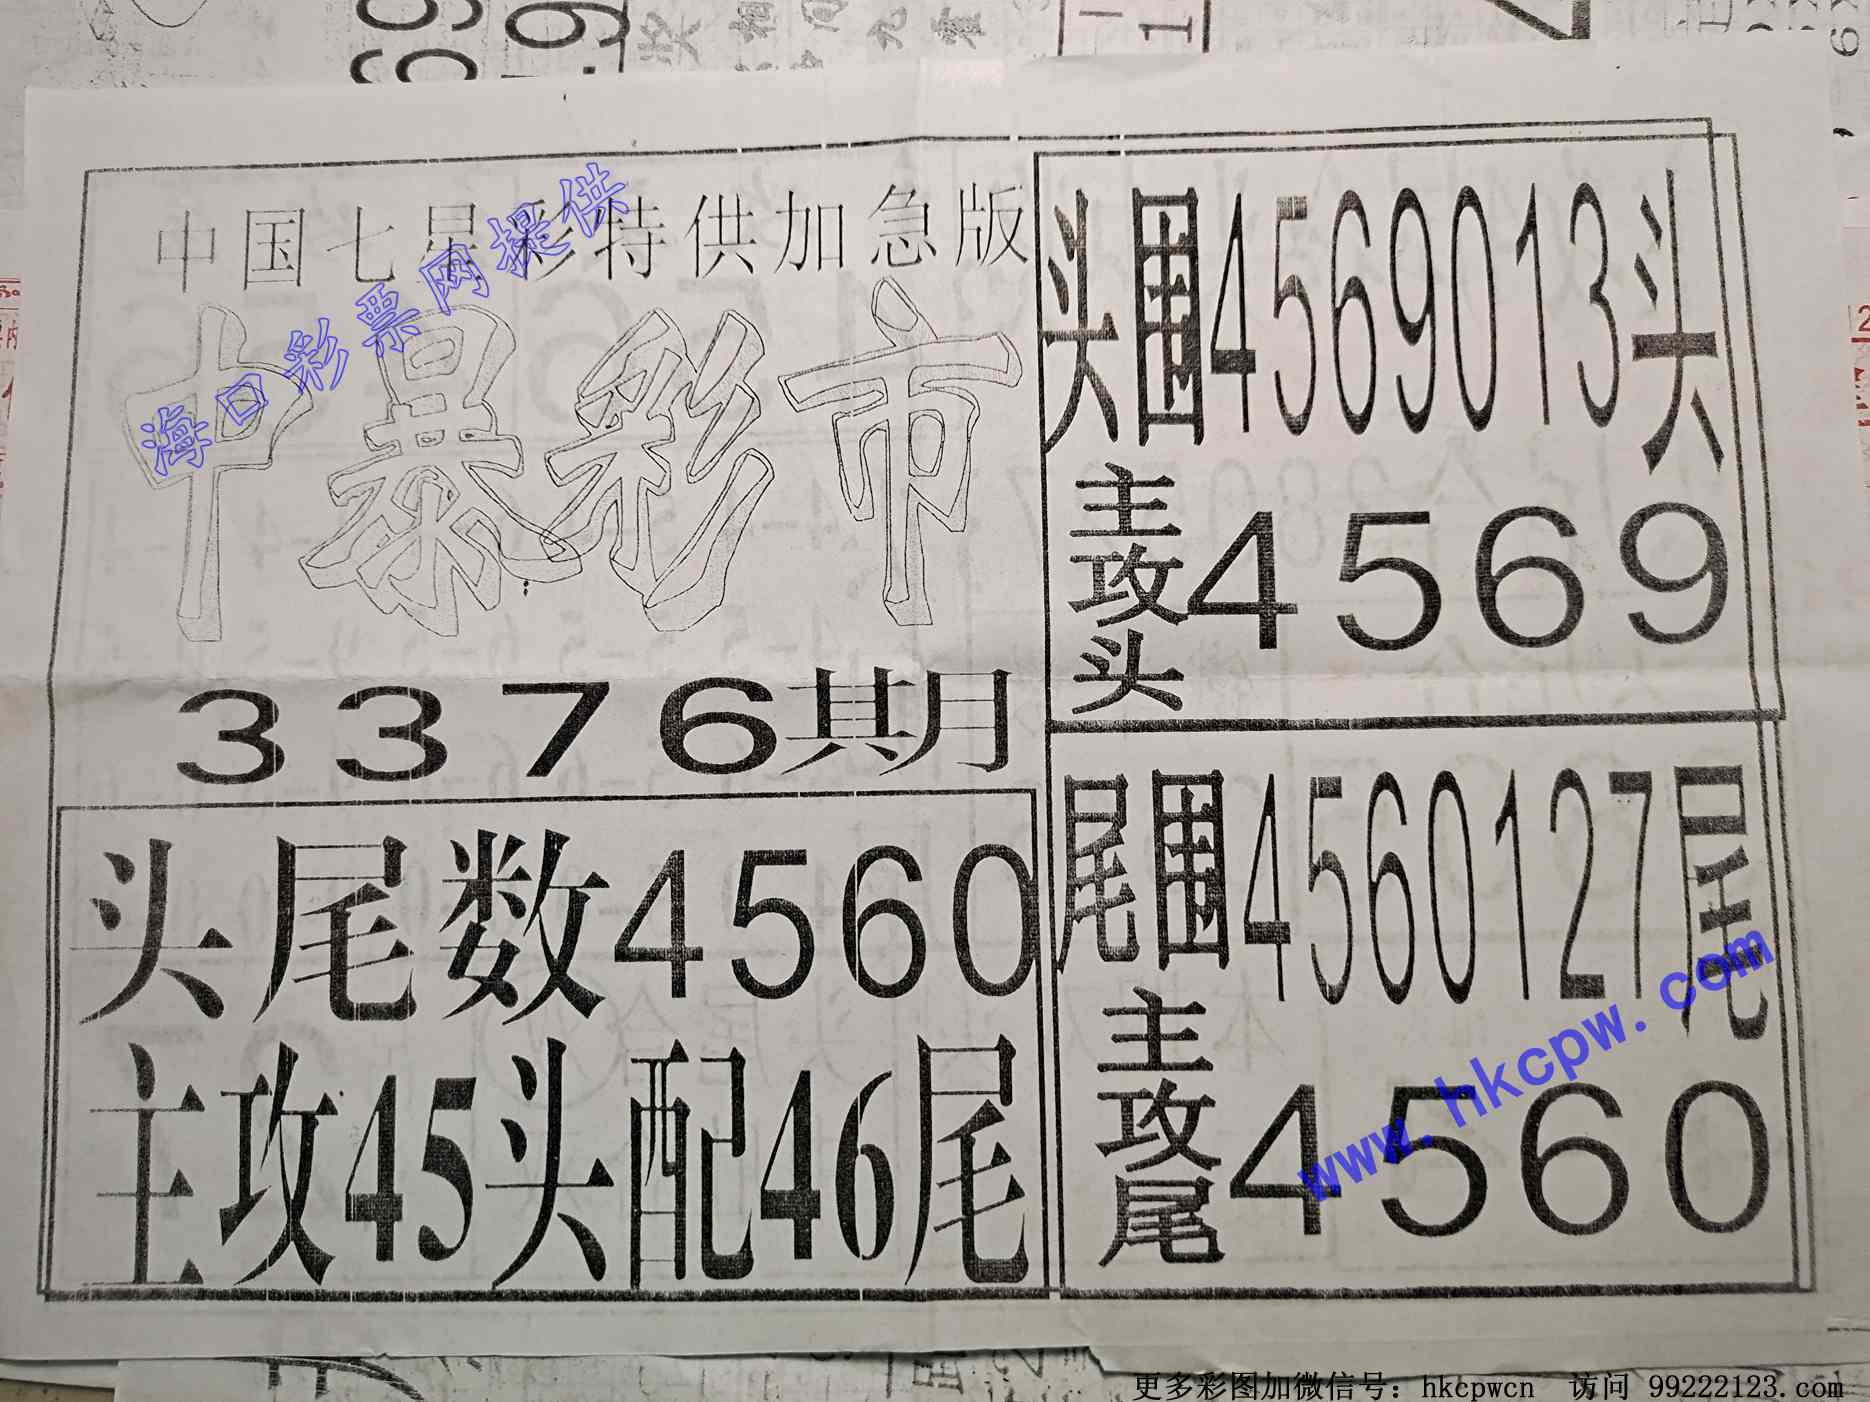 中国七星彩特供加急版
中暴彩市
3376期
头尾数4560
主攻45头配46尾
头围4569013头
主攻头4569
尾围4560127尾
主攻尾4560
海口彩票网提供
www.hkcpw.com
更多彩图加微信号：hkcpwcn 访问 99222123.com